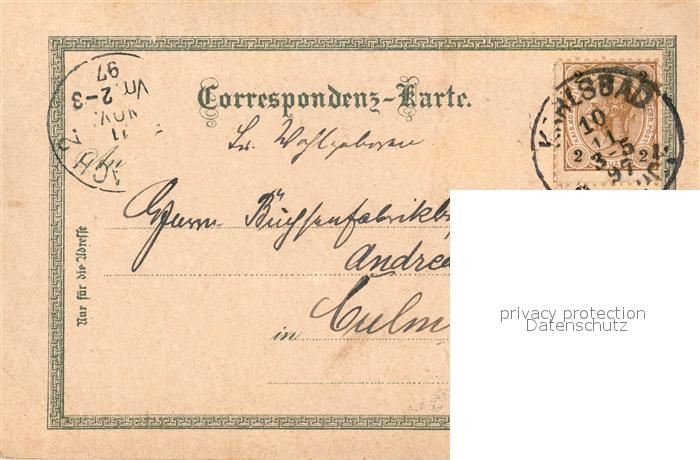 Correspondenz-Karte.
Sr. Wohlgeboren
Herrn Büchsenfabrikb
Andrea
in Culm
Nur für die Adresse
KARLSBAD
10
11
3-5
97
2 2
11
NOV
2-3
97
privacy protection
Datenschutz